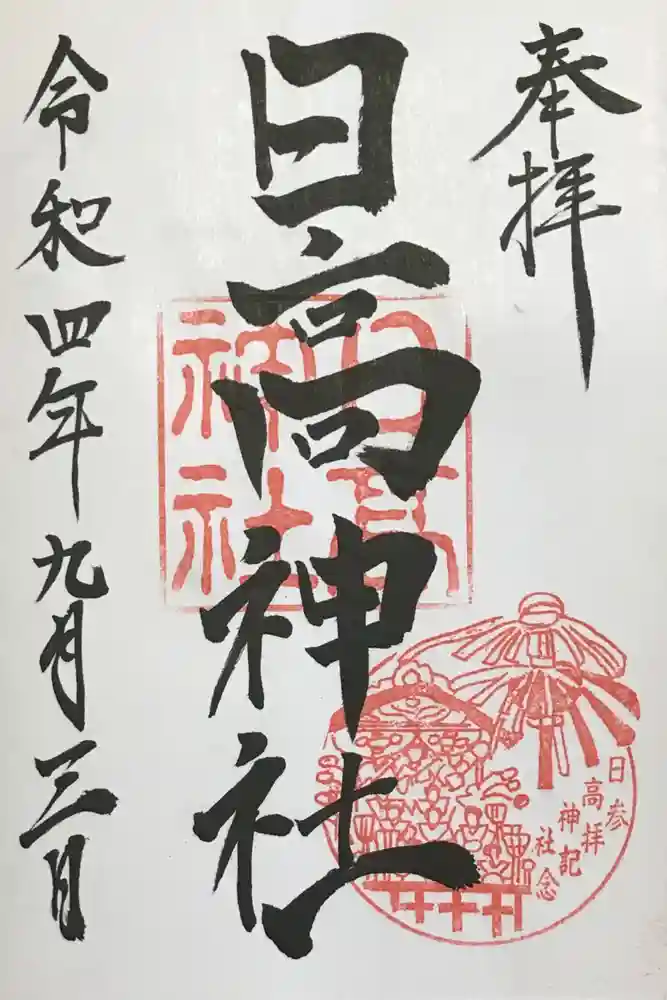 奉拝
日高神社
令和四年九月三日
日高神社
日高神社
参拝記念